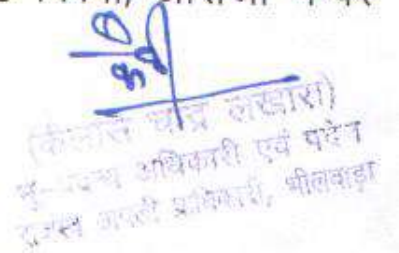 (कैलाश चन्द्र लखारा)
भू-प्रबन्ध अधिकारी एवं पदेन
राजस्व अपील प्राधिकारी, भीलवाड़ा